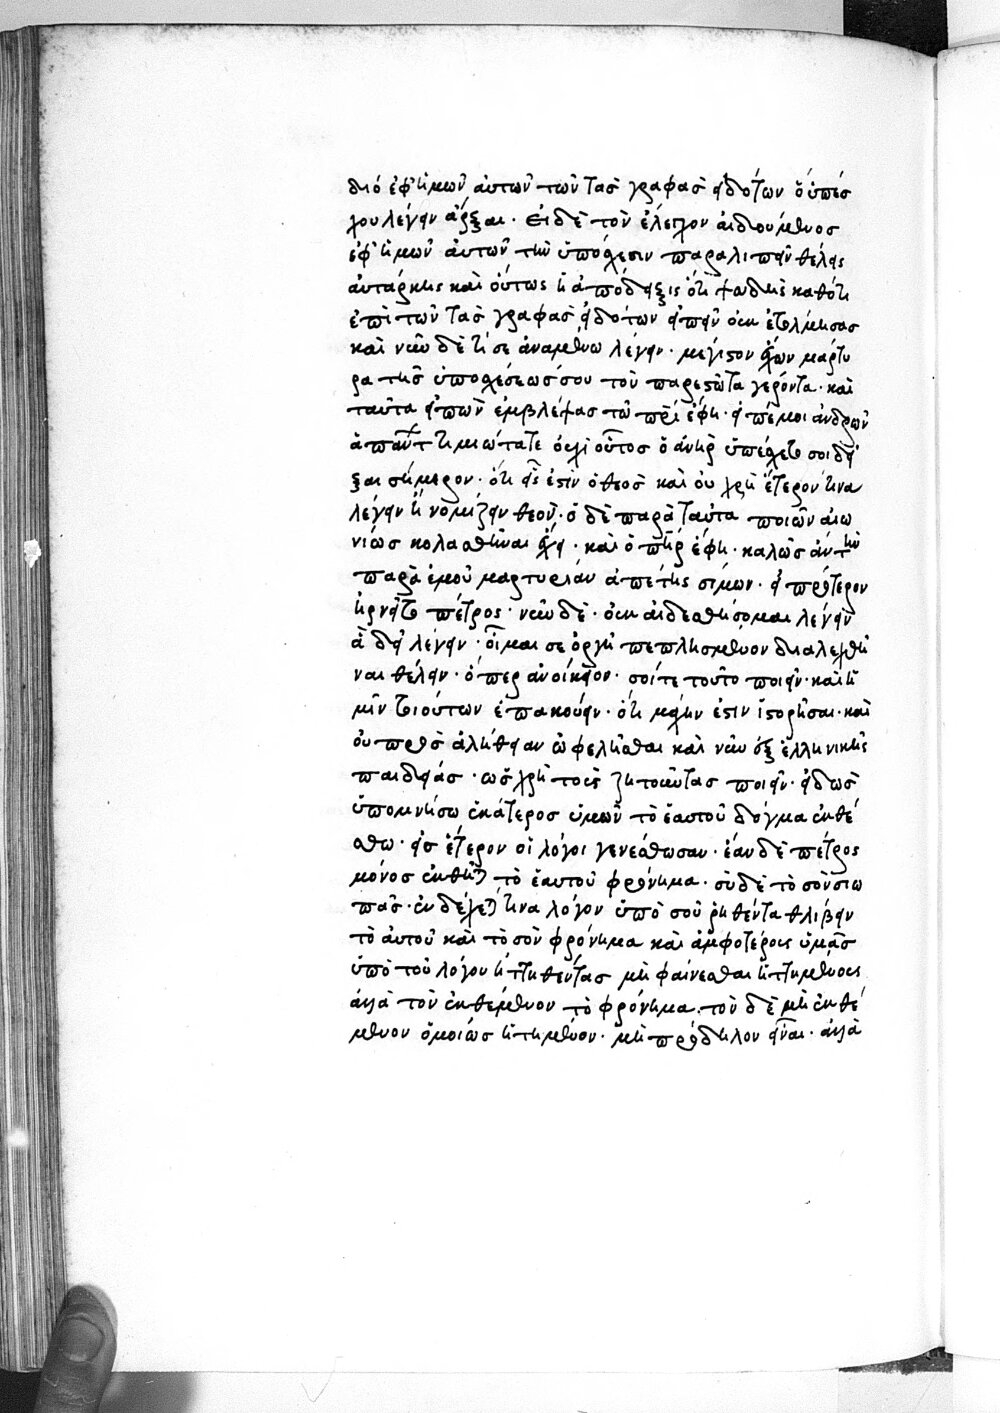 διό ἐφ' ἡμῶν αὐτῶν τῶν τὰς γραφὰς εἰδότων ὃ ὑπέσ
χου λέγειν ἄρξαι· εἰ δὲ τὸν ἔλεγχον αἰδούμενος
ἐφ' ἡμῶν αὐτῶν τὴν ὑπόσχεσιν παραλιπεῖν θέλεις
αὐτάρκης καὶ οὕτως ἡ ἀπόδειξις ὅτι ψευδὴς καθότι
ἐπὶ τῶν τὰς γραφὰς εἰδότων εἰπεῖν οὐκ ἐτόλμησας
καὶ νῦν δὲ τί σε ἀναμένω λέγειν· μέγιστον ἔχων μάρτυ
ρα τῆς ὑποσχέσεώς σου τὸν παρεστῶτα γέροντα· καὶ
ταῦτα εἰπὼν ἐμβλέψας τῷ πρι ἔφη· εἰπέ μοι ἀνδρῶν
ἁπάντων τιμιώτατε οὐχὶ οὗτος ὁ ἀνὴρ ὑπέσχετό σοι δεῖ
ξαι σήμερον· ὅτι εἷς ἐστὶν ὁ θεὸς καὶ οὐ χρὴ ἕτερόν τινα
λέγειν ἢ νομίζειν θεόν· ὁ δὲ παρὰ ταῦτα ποιῶν αἰω
νίως κολασθῆναι ἔχει· καὶ ὁ πηρ ἔφη· καλῶς ἂν τὴν
παρὰ ἐμοῦ μαρτυρίαν ἀπῄτεις σίμων· εἰ πρότερον
ἠρνεῖτο πέτρος· νῦν δὲ· οὐκ αἰδεσθήσομαι λέγειν
ἃ δεῖ λέγειν· οἶμαί σε ὀργῇ πεπλησμένον διαλεχθῆ
ναι θέλειν· ὅπερ ἀνοίκειον· σοί τε τοῦτο ποιεῖν· καὶ ἡ
μῖν τοιούτων ἐπακούειν· ὅτι μάχην ἐστὶν ἱστορῆσαι· καὶ
οὐ πρὸς ἀλήθειαν ὠφελῆσθαι καὶ νῦν ἐξ ἑλληνικῆς
παιδείας· ὡς χρὴ τοὺς ζητοῦντας ποιεῖν· εἰδὼς
ὑπομνήσω ἑκάτερος ὑμῶν τὸ ἑαυτοῦ δόγμα ἐκθέ
σθω· εἰς ἕτερον οἱ λόγοι γενέσθωσαν· ἐὰν δὲ πέτρος
μόνος ἐκθῆται τὸ ἑαυτοῦ φρόνημα· σὺ δὲ τὸ σὸν σιω
πᾷς· ἐνδέχεταί τινα λόγον ὑπὸ σοῦ ῥηθέντα θλίβειν
τὸ αὐτοῦ καὶ τὸ σὸν φρόνημα καὶ ἀμφοτέρους ὑμᾶς
ὑπὸ τοῦ λόγου ἡττηθέντας μὴ φαίνεσθαι ἡττημένους
ἀλλὰ τὸν ἐκθέμενον τὸ φρόνημα· τὸν δὲ μὴ ἐκθέ
μενον ὁμοίως ἡττημένον· μὴ πρόδηλον εἶναι· ἀλλὰ